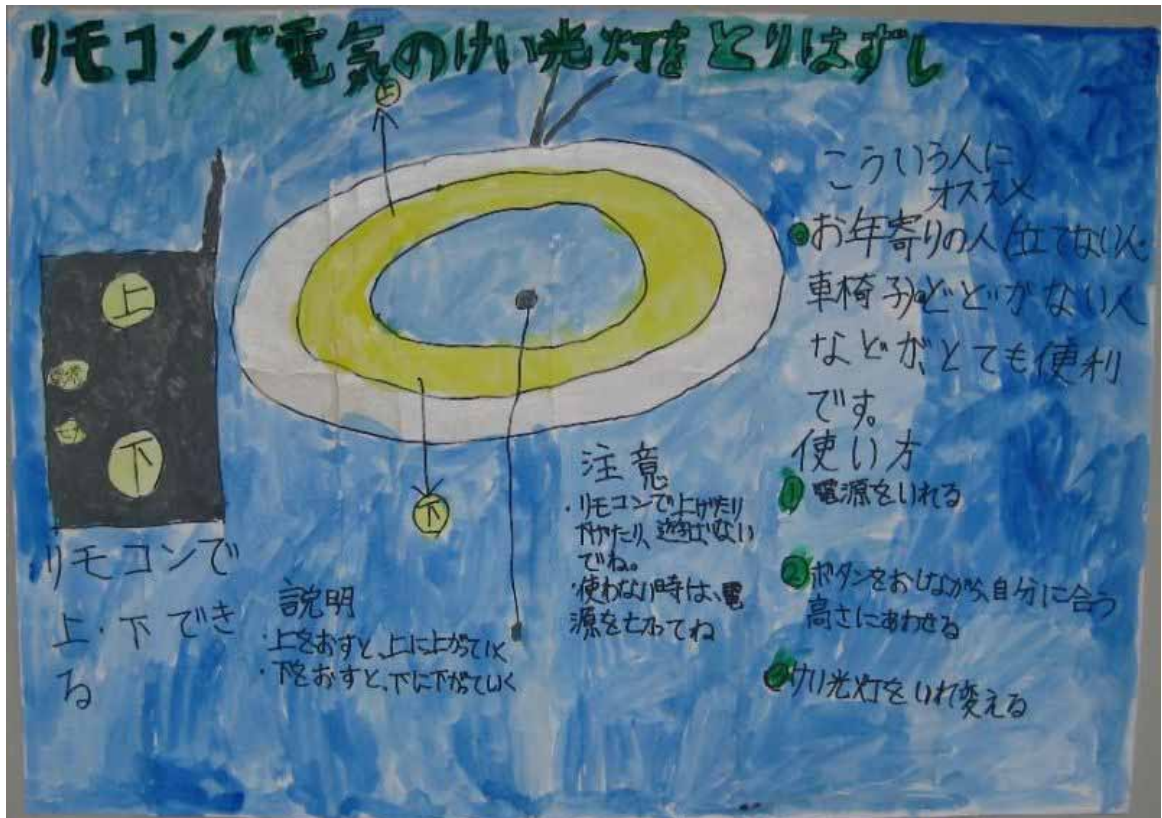 リモコンで電気のけい光灯をとりはずし
上
上
下
リモコンで
上・下でき
る
下
説明
・上をおすと、上に上がていく
・下をおすと、下に下がていく
注意
・リモコンで上がたり
下がたり、遊ばない
でね。
・使わない時は、電
源を切ってね
こういう人に
オススメ
お年寄りの人(立てない人
車椅子)とどかない人
などが、とても便利
です。
使い方
① 電源をいれる
② ボタンをおしながら、自分に合う
高さにあわせる
けい光灯をいれ変える